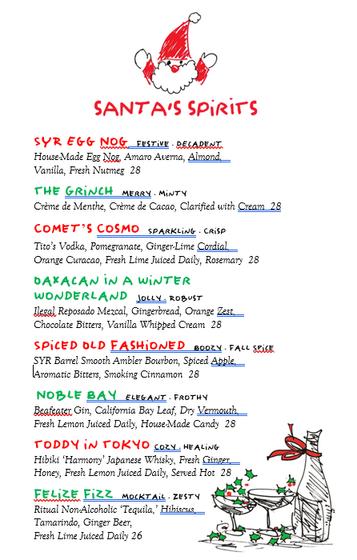 SANTA'S SPIRITS
SYR EGG NOG FESTIVE · DECADENT
House-Made Egg Nog, Amaro Averna, Almond,
Vanilla, Fresh Nutmeg 28
THE GRINCH MERRY · MINTY
Crème de Menthe, Crème de Cacao, Clarified with Cream 28
COMET'S COSMO SPARKLING · CRISP
Tito's Vodka, Pomegranate, Ginger-Lime Cordial,
Orange Curacao, Fresh Lime Juiced Daily, Rosemary 28
OAXACAN IN A WINTER
WONDERLAND JOLLY · ROBUST
Ilegal Reposado Mezcal, Gingerbread, Orange Zest,
Chocolate Bitters, Vanilla Whipped Cream 28
SPICED OLD FASHIONED BOOZY · FALL SPICE
SYR Barrel Smooth Ambler Bourbon, Spiced Apple,
Aromatic Bitters, Smoking Cinnamon 28
NOBLE BAY ELEGANT · FROTHY
Beafeater Gin, California Bay Leaf, Dry Vermouth,
Fresh Lemon Juiced Daily, House-Made Candy 28
TODDY IN TOKYO COZY · HEALING
Hibiki 'Harmony' Japanese Whisky, Fresh Ginger,
Honey, Fresh Lemon Juiced Daily, Served Hot 28
FELIZE FIZZ MOCKTAIL · ZESTY
Ritual Non-Alcoholic 'Tequila,' Hibiscus,
Tamarindo, Ginger Beer,
Fresh Lime Juiced Daily 26